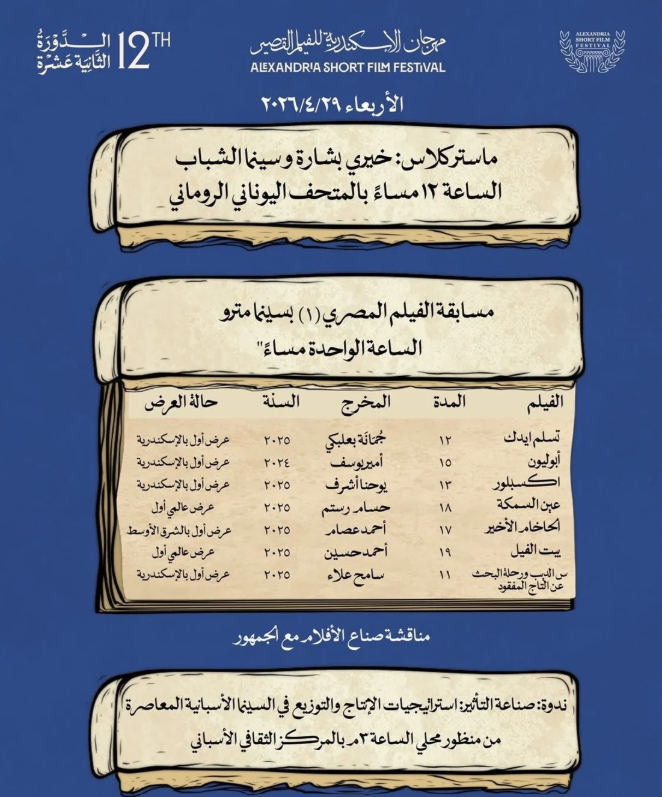 الدَّوْرَةُ
الثَّانِيَةَ عَشْرَةَ
12TH
مهرجان الإسكندرية للفيلم القصير
ALEXANDRIA SHORT FILM FESTIVAL
ALEXANDRIA
SHORT FILM
FESTIVAL
الأربعاء ٢٠٢٦/٤/٢٩
ماستركلاس: خيري بشارة وسينما الشباب
الساعة ١٢ مساءً بالمتحف اليوناني الروماني
مسابقة الفيلم المصري (١) بسينما مترو
الساعة الواحدة مساءً"
الفيلم المدة المخرج السنة حالة العرض
تسلم ايدك ١٢ جُمَانَة بعلبكي ٢٠٢٥ عرض أول بالإسكندرية
أبوليون ١٥ أمير يوسف ٢٠٢٤ عرض أول بالإسكندرية
اكسبلور ١٣ يوحنا أشرف ٢٠٢٥ عرض أول بالإسكندرية
عين السمكة ١٨ حسام رستم ٢٠٢٥ عرض عالمي أول
الحاخام الأخير ١٧ أحمد عصام ٢٠٢٥ عرض أول بالشرق الأوسط
بيت الفيل ١٩ أحمد حسين ٢٠٢٥ عرض عالمي أول
س الدب ورحلة البحث
عن التاج المفقود ١١ سامح علاء ٢٠٢٥ عرض أول بالإسكندرية
مناقشة صناع الأفلام مع الجمهور
ندوة: صناعة التأثير: استراتيجيات الإنتاج والتوزيع في السينما الأسبانية المعاصرة
من منظور محلي الساعة ٣م بالمركز الثقافي الأسباني